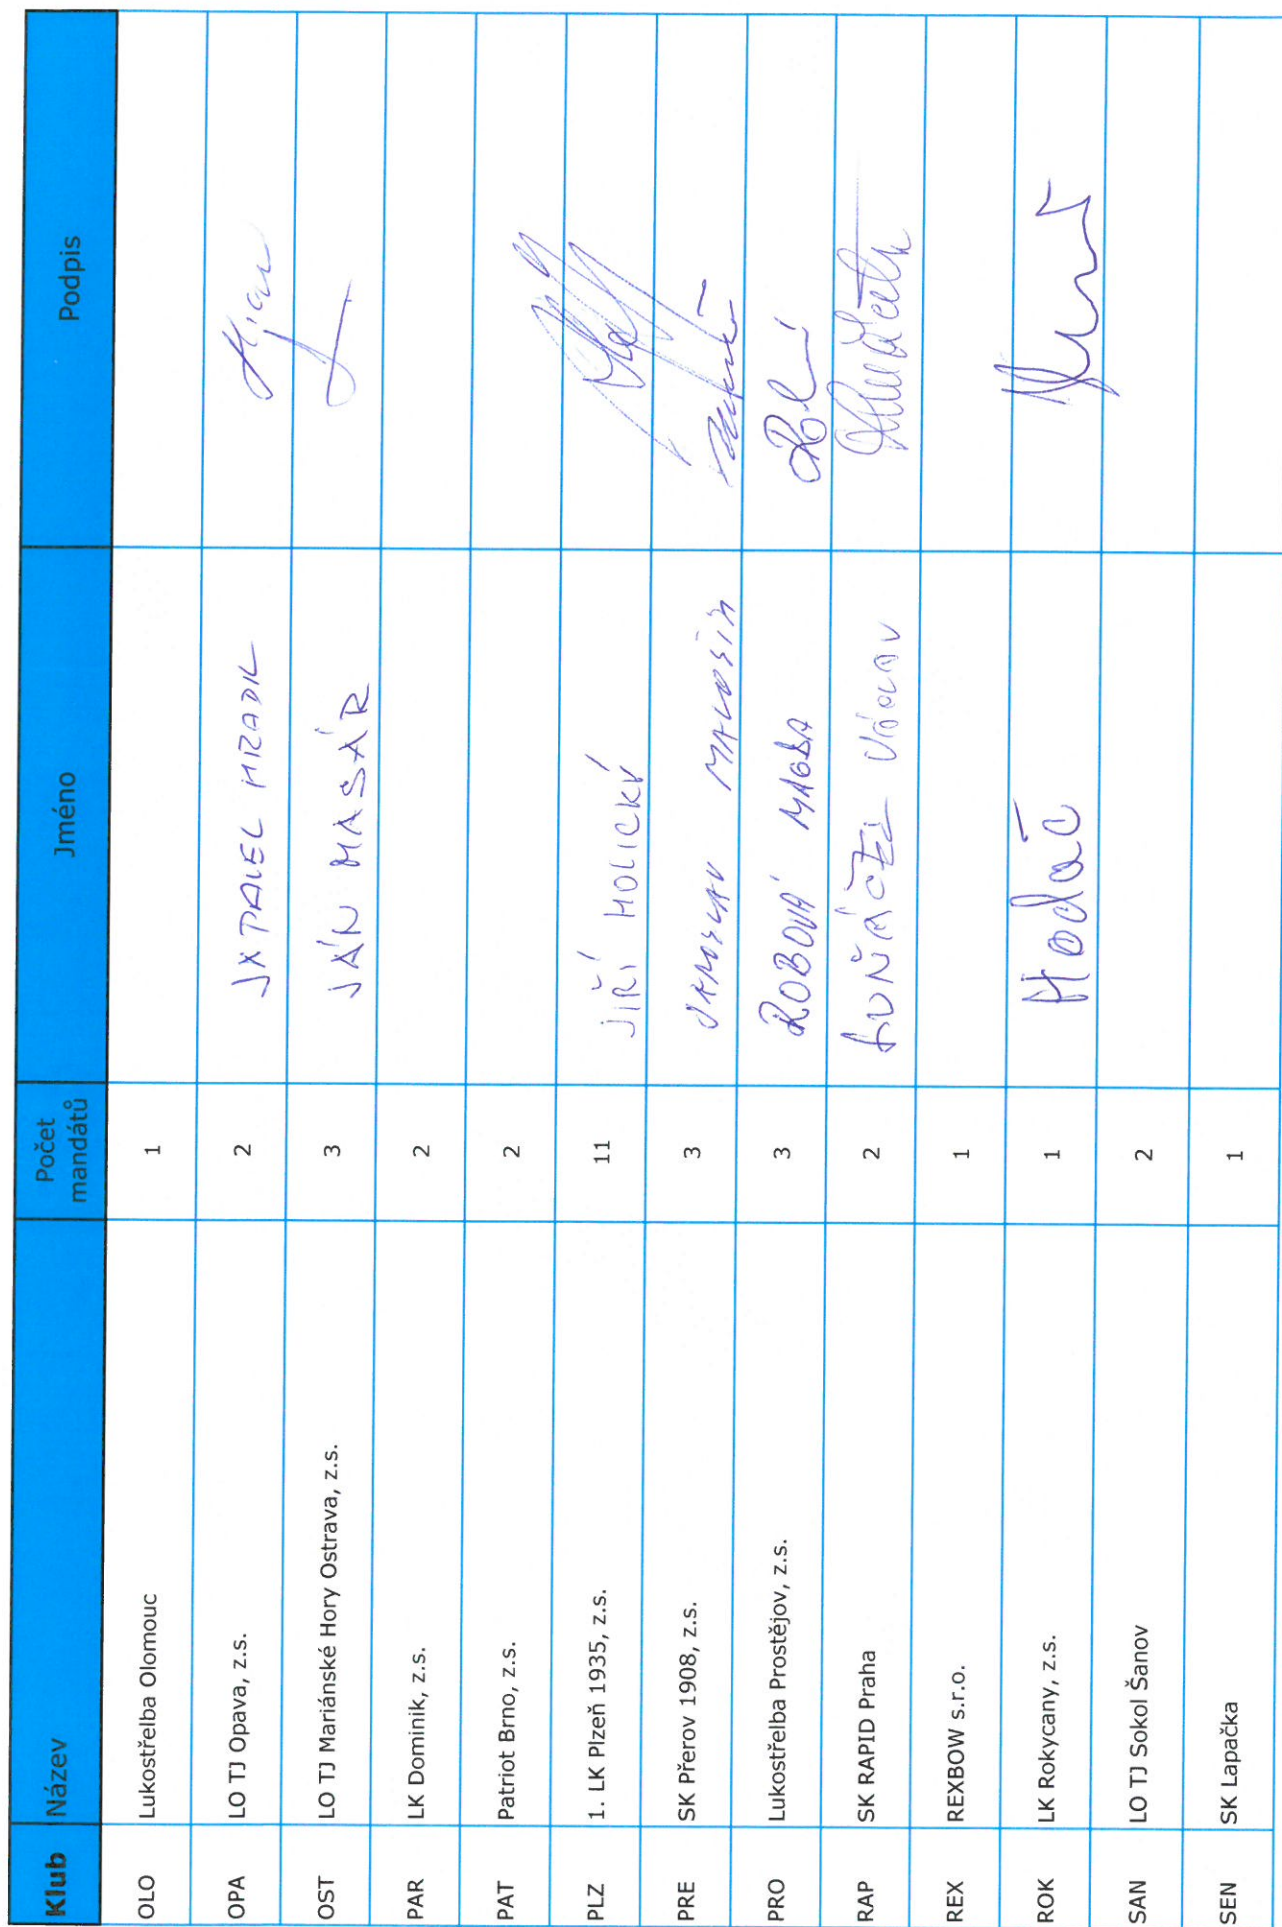 Klub Název Počet mandátů Jméno Podpis
OLO Lukostřelba Olomouc 1
OPA LO TJ Opava, z.s. 2 HRADIL
OST LO TJ Mariánské Hory Ostrava, z.s. 3 JÁN MASÁR
PAR LK Dominik, z.s. 2
PAT Patriot Brno, z.s. 2
PLZ 1. LK Plzeň 1935, z.s. 11 JIŘÍ HOLICKÝ
PRE SK Přerov 1908, z.s. 3 JAROSLAV
PRO Lukostřelba Prostějov, z.s. 3 ROBOVÁ MAGDA
RAP SK RAPID Praha 2
REX REXBOW s.r.o. 1
ROK LK Rokycany, z.s. 1 Hodač
SAN LO TJ Sokol Šanov 2
SEN SK Lapačka 1